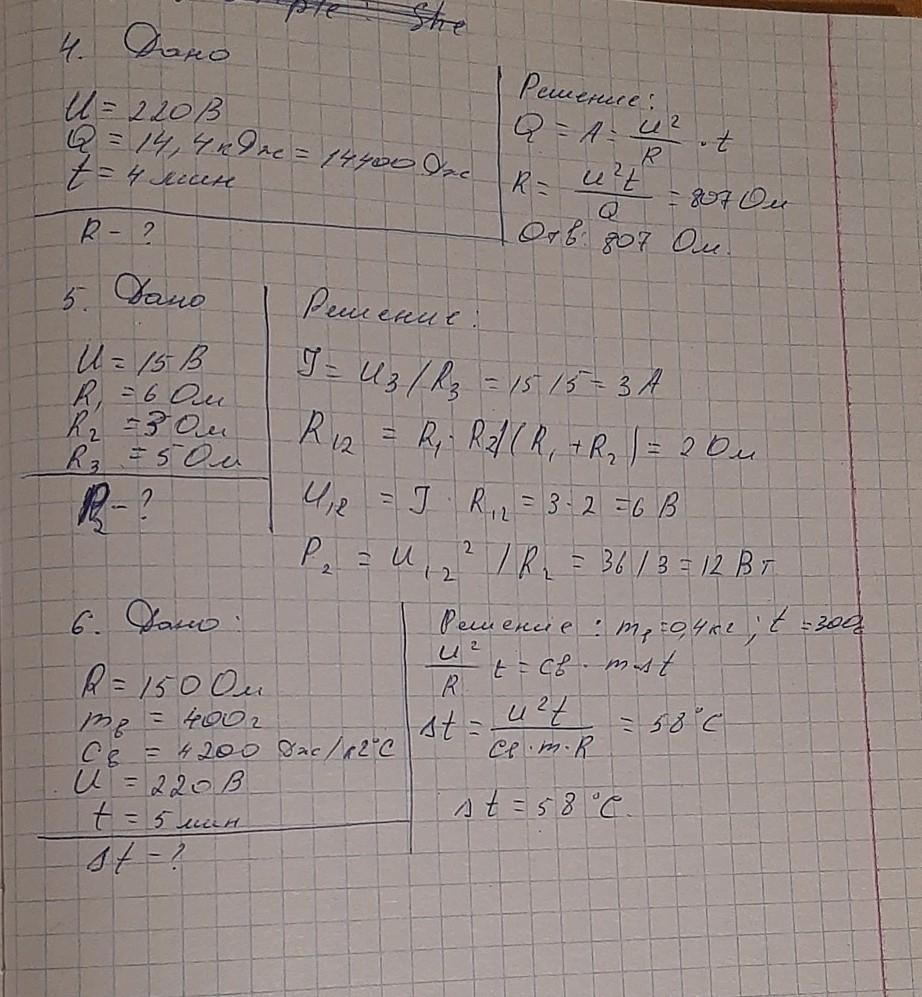 4. Дано
U = 220 В
Q = 14,4 кДж = 14400 Дж
t = 4 мин
R - ?
Решение:
Q = A = U²/R · t
R = U²t/Q = 807 Ом
Отв: 807 Ом.
5. Дано
U = 15 В
R₁ = 6 Ом
R₂ = 3 Ом
R₃ = 5 Ом
P₂ - ?
Решение:
I = U₃/R₃ = 15/5 = 3 А
R₁₂ = R₁ · R₂/(R₁ + R₂) = 2 Ом
U₁₂ = I · R₁₂ = 3 · 2 = 6 В
P₂ = U₁₂² / R₂ = 36/3 = 12 Вт
6. Дано:
R = 150 Ом
mв = 400 г
Cв = 4200 Дж/кг°C
U = 220 В
t = 5 мин
Δt - ?
Решение: mв = 0,4 кг; t = 300с
U²/R t = Cв · m · Δt
Δt = U²t/Cв · m · R = 58°C
Δt = 58°C.